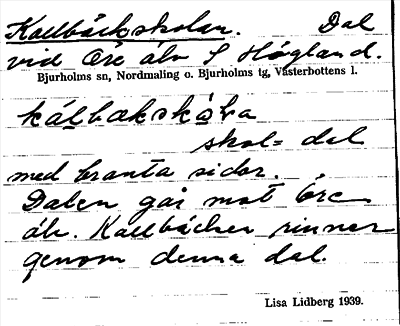 Kallbäckskolan. Dal
vid Öre älv S Högland.
Bjurholms sn, Nordmaling o. Bjurholms tg, Västerbottens l.
kálbækskòɫa
skol- dal
med branta sidor.
Dalen går mot Öre
älv. Kallbäcken rinner
genom denna dal.
Lisa Lidberg 1939.